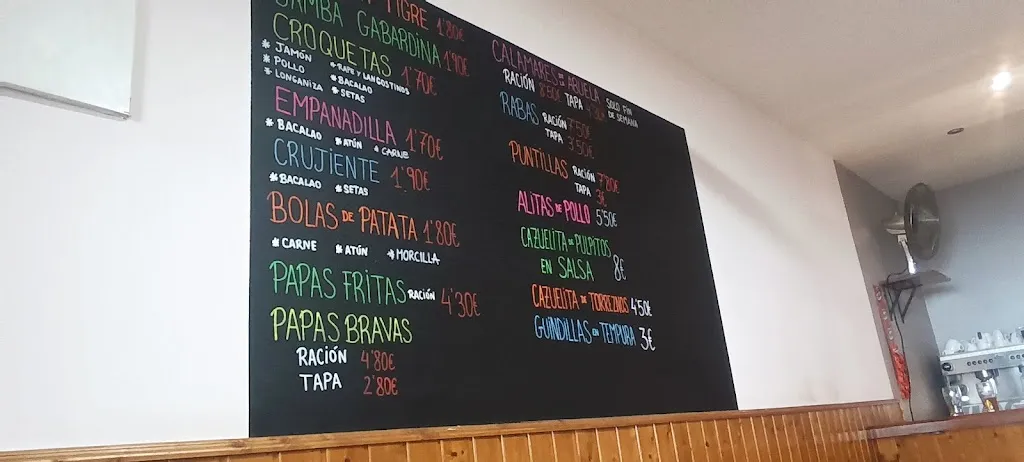 TIGRE 1'80€
GAMBA GABARDINA 1'90€
CROQUETAS 1'70€
* JAMÓN * RAPE Y LANGOSTINOS
* POLLO * BACALAO
* LONGANIZA * SETAS
EMPANADILLA 1'70€
* BACALAO * ATÚN * CARNE
CRUJIENTE 1'90€
* BACALAO * SETAS
BOLAS DE PATATA 1'80€
* CARNE * ATÚN * MORCILLA
PAPAS FRITAS RACIÓN 4'30€
PAPAS BRAVAS
RACIÓN 4'80€
TAPA 2'80€
CALAMARES DE ABUELA SOLO FIN
RACIÓN 8'50€ TAPA DE SEMANA
RABAS RACIÓN 7'50€
TAPA 3'50€
PUNTILLAS RACIÓN
TAPA 3€
ALITAS DE POLLO 5'50€
CAZUELITA DE PULPITOS
EN SALSA 8€
CAZUELITA DE TORREZNOS 4'50€
GUINDILLAS EN TEMPURA 3€